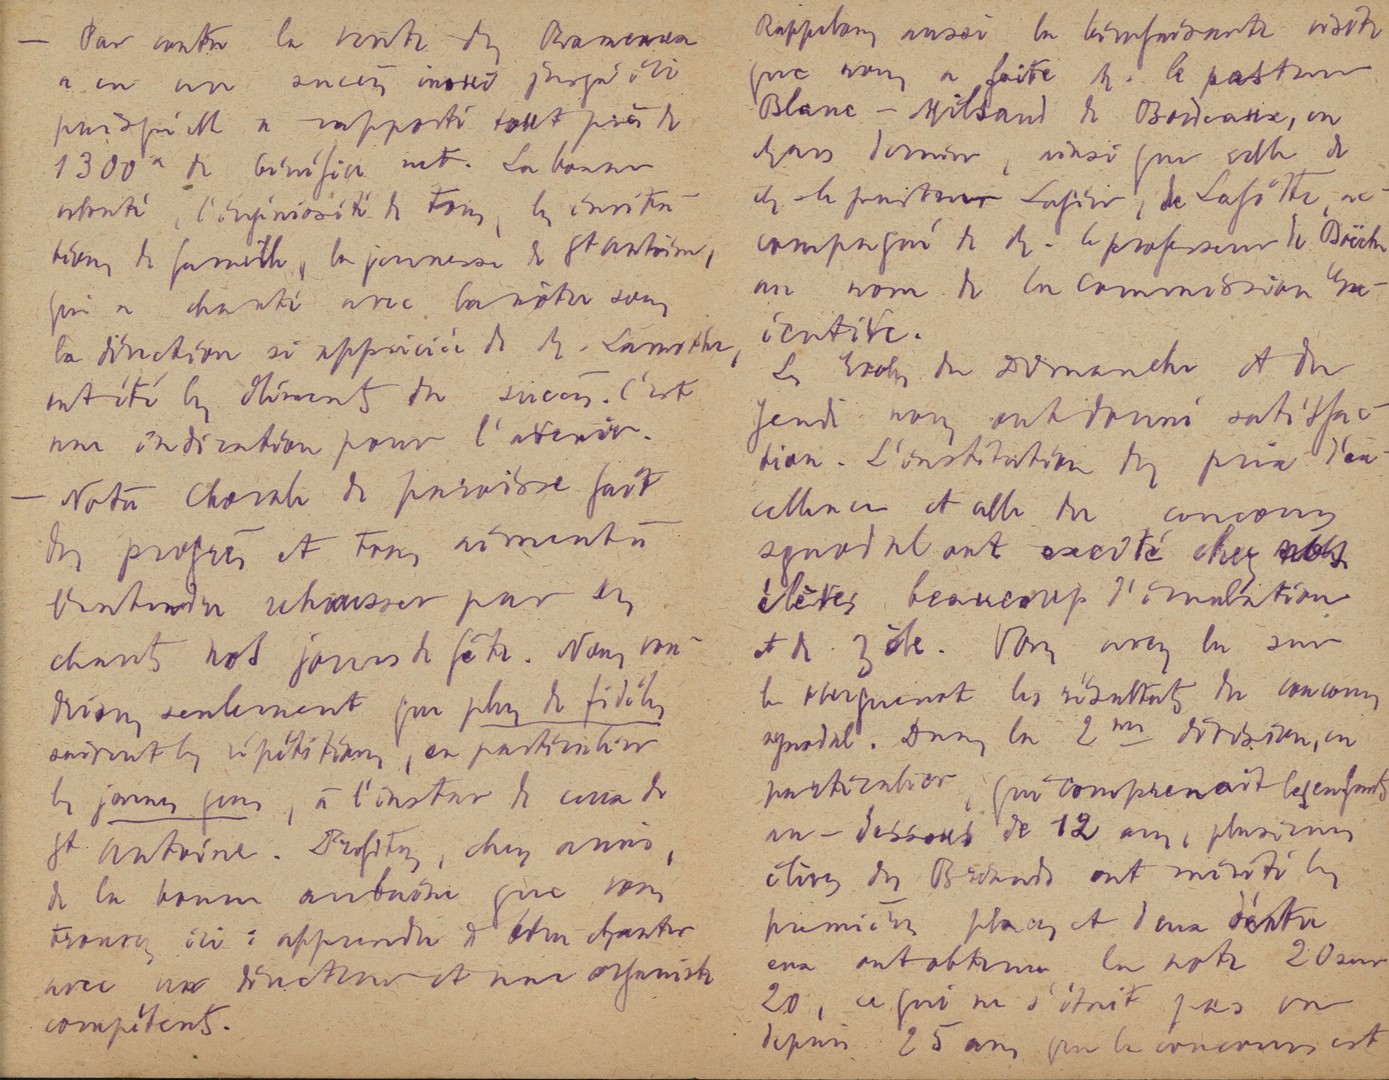 — Par contre la vente des Rameaux
a eu un succès inouï jusqu'ici
puisqu'elle a rapporté tout près de
1300 de bénéfice net. La bonne
volonté, l'ingéniosité de tous, les invita-
tions de famille, la jeunesse de St Antoine,
qui a chanté avec la nôtre sous
la direction si appréciée de M. Lamothe,
ont été les éléments du succès. C'est
une indication pour l'avenir.
— Notre Chorale de paroisse fait
des progrès et tous aiment à
l'entendre rehausser par ses
chants nos jours de fête. Nous vou-
drions seulement que plus de fidèles
suivent les répétitions, en particulier
les jeunes gens, à l'instar de ceux de
St Antoine. Profitez, chers amis,
de la bonne aubaine que vous
trouvez ici : apprendre à bien chanter
avec un directeur et une organiste
compétents.
Rappelons aussi la bienfaisante visite
que nous a faite M. le pasteur
Blanc-Milsand de Bordeaux, en
mars dernier, ainsi que celle de
M. le pasteur Lafon, de Lafitte, ac-
compagné de M. le professeur de
au nom de la Commission Exé-
cutive.
Les Ecoles du Dimanche et du
Jeudi nous ont donné satisfac-
tion. L'institution des prix d'ex-
cellence et celle du concours
synodal ont excité chez nos
élèves beaucoup d'émulation
et de zèle. Vous avez lu sur
le Huguenot les résultats du concours
synodal. Dans la 2me division, en
particulier, qui comprenait les enfants
au-dessous de 12 ans, plusieurs
élèves des Briands ont mérité les
premières places et deux d'entre
eux ont obtenu la note 20 sur
20, ce qui ne s'était pas vu
depuis 25 ans que le concours est